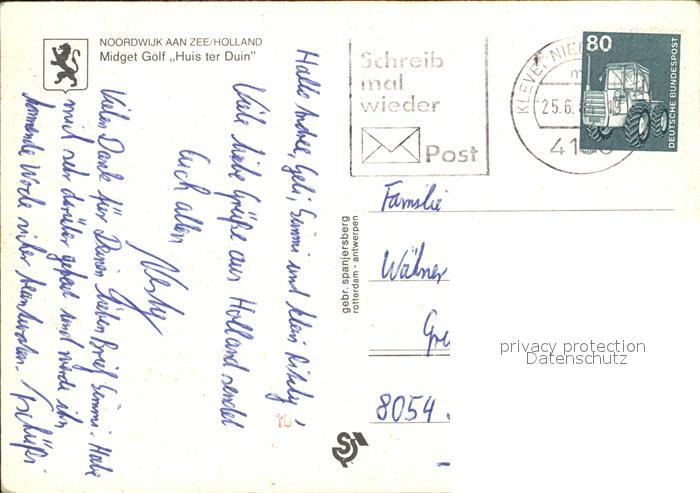 NOORDWIJK AAN ZEE/HOLLAND
Midget Golf „Huis ter Duin"
Hallo Andre, Gabi, Simmi und klein
Viele liebe Grüße aus Holland sendet
Euch allen
Vielen Dank für Deinen lieben Brief Simmi. Habe
mich sehr darüber gefreut und werde ihn
kommende Woche sicher beantworten. Tschüßi
gebr. spanjersberg
rotterdam - antwerpen
Schreib
mal
wieder
Post
KLEVE-NIE
25.6.
41
80
DEUTSCHE BUNDESPOST
Familie
8054
privacy protection
Datenschutz